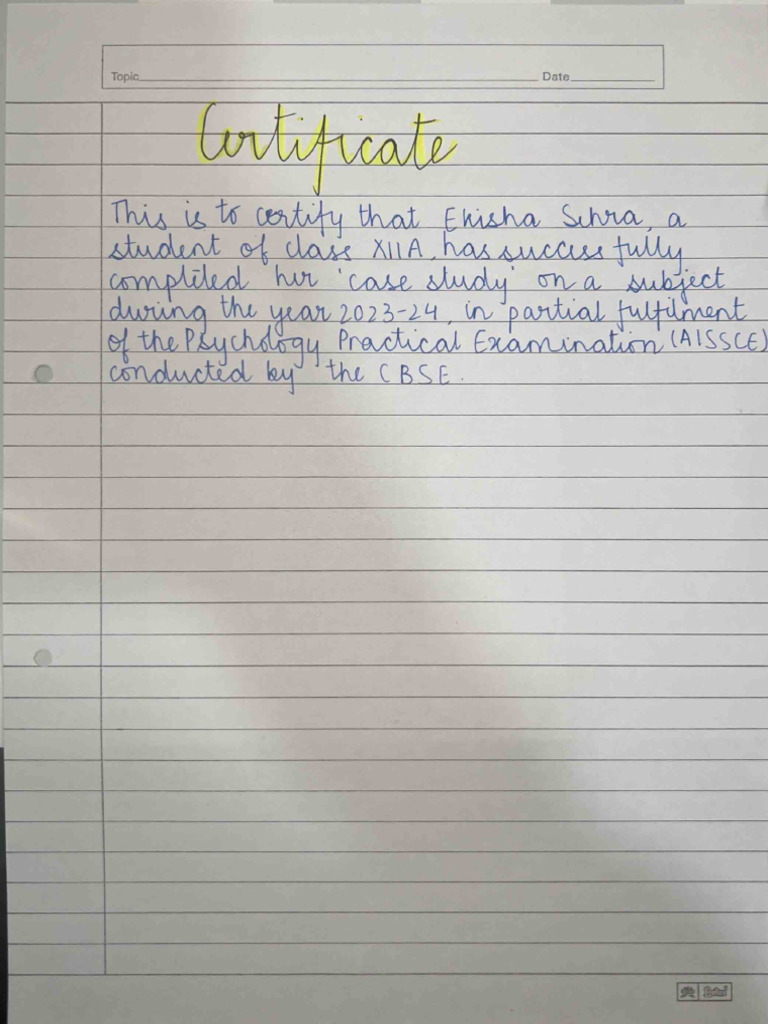 Topic Date
Certificate
This is to certify that Ekisha Sehra, a
student of class XIIA, has successfully
completed her 'case study' on a subject
during the year 2023-24, in partial fulfilment
of the Psychology Practical Examination (AISSCE)
conducted by the CBSE.